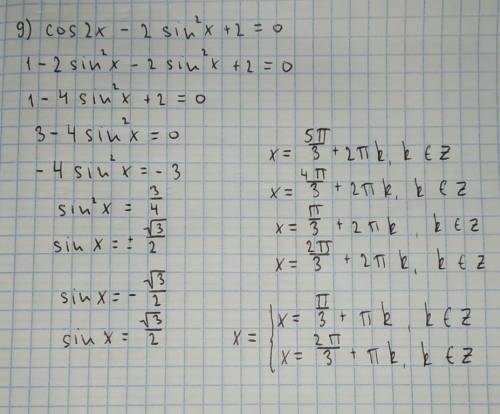 9) cos 2x - 2 sin²x + 2 = 0
1 - 2 sin²x - 2 sin²x + 2 = 0
1 - 4 sin²x + 2 = 0
3 - 4 sin²x = 0
- 4 sin²x = - 3
sin²x = 3/4
sin x = ± √3/2
sin x = - √3/2
sin x = √3/2
x = 5π/3 + 2πk, k ∈ Z
x = 4π/3 + 2πk, k ∈ Z
x = π/3 + 2πk, k ∈ Z
x = 2π/3 + 2πk, k ∈ Z
x = { x = π/3 + πk, k ∈ Z
x = 2π/3 + πk, k ∈ Z